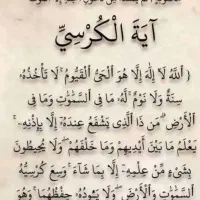 آيَةَ الْكُرْسِيِّ
﴿ اللَّهُ لَا إِلَهَ إِلَّا هُوَ الْحَيُّ الْقَيُّومُ ۚ لَا تَأْخُذُهُ
سِنَةٌ وَلَا نَوْمٌ ۚ لَهُ مَا فِي السَّمَٰوَٰتِ وَمَا فِي
الْأَرْضِ ۗ مَن ذَا الَّذِي يَشْفَعُ عِندَهُ إِلَّا بِإِذْنِهِ ۚ
يَعْلَمُ مَا بَيْنَ أَيْدِيهِمْ وَمَا خَلْفَهُمْ ۖ وَلَا يُحِيطُونَ
بِشَيْءٍ مِّنْ عِلْمِهِ إِلَّا بِمَا شَاءَ ۚ وَسِعَ كُرْسِيُّهُ
السَّمَٰوَٰتِ وَالْأَرْضَ ۖ وَلَا يَئُودُهُ حِفْظُهُمَا ۚ وَهُوَ